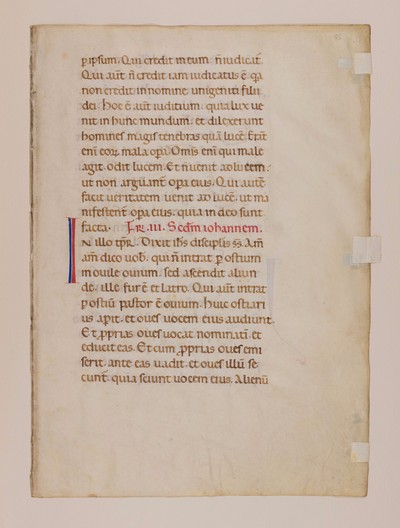 p ipsum. Qui credit in eum. n̄ iudicat̃.
Qui aut̃ ñ credit iam iudicatus ẽ. q̃a
non credit in nomine unigeniti filii
dei. Hoc ẽ aut̃ iuditium. quia lux ue
nit in hunc mundum. et dilexerunt
homines magis tenebras quã lucẽ. Erãt
enĩ eoꝝ mala opa. Omis enĩ qui male
agit. odit lucem. Et ñ uenit ad lucem.
ut non arguant̃ opa eius. Qui autẽ
facit ueritatem uenit ad lucẽ. ut ma
nifestent̃ opa eius. quia in deo sunt
facta. F̃R. III. Scđm iohannem.
IN illo tp̃r. Dixit ih̃s disciplis s̃s. Am̃
am̃ dico uob̃. qui ñ intrat p ostium
in ouile ouium. sed ascendit aliun
de. ille fur ẽ et latro. Qui aut̃ intrat
p ostiũ pastor ẽ ouium. Huic ostiari
us apit. et oues uocem eius audiunt.
Et p̃prias oues uocat nominatĩ. et
educit eas. Et cum p̃prias oues emi
serit. ante eas uadit. et oues illũ se
cunt̃. quia sciunt uocem eius. Alienũ